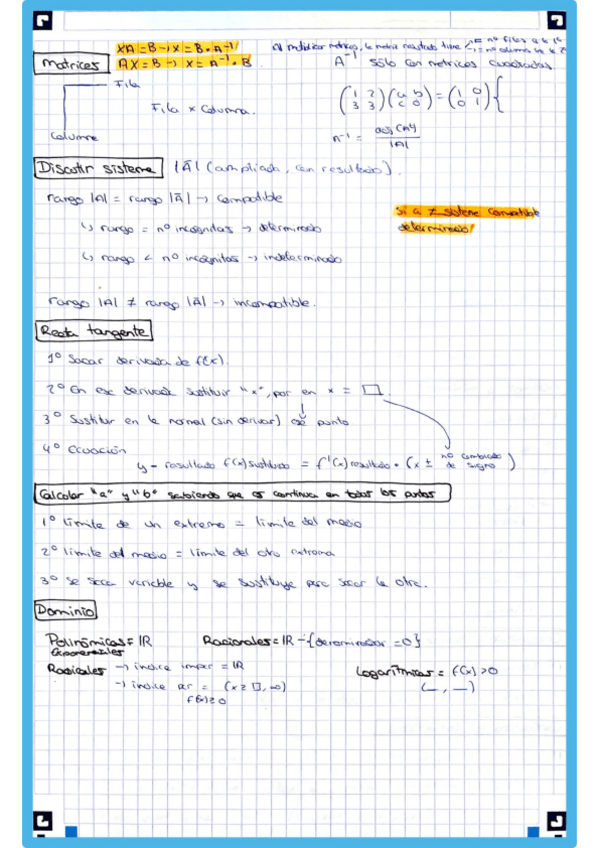 XA=B→X=B·A⁻¹
AX=B→X=A⁻¹·B
Al multiplicar matrices, la matriz resultado tiene = nº filas de la 1ª
= nº columnas de la 2ª
Matrices
A⁻¹ sólo con matrices cuadradas.
Fila
Fila x Columna.
Columna
(1 2 / 3 3)(a b / c d) = (1 0 / 0 1) {
A⁻¹ = adj(Aᵗ) / |A|
Discutir sistema |Ā| (ampliada, con resultado).
rango |A| = rango |Ā| → compatible
↳ rango = nº incógnitas → determinado
↳ rango < nº incógnitas → indeterminado
Si a ≠ sistema compatible
determinado!
rango |A| ≠ rango |Ā| → incompatible.
Recta tangente
1º Sacar derivada de f(x).
2º En esa derivada sustituir "x", por en x = □
3º Sustituir en la normal (sin derivar) ese punto
4º Ecuación
y - resultado f(x) sustituido = f'(x) resultado · (x ± nº cambiado de signo)
Calcular "a" y "b" sabiendo que es continua en todos los puntos
1º límite de un extremo = límite del medio
2º límite del medio = límite del otro extremo
3º se saca variable y se sustituye para sacar la otra.
Dominio
Polinómicas = IR
Exponenciales
Racionales = IR - {denominador = 0}
Radicales → índice impar = IR
→ índice par = (x ≥ □, ∞)
f(x) ≥ 0
Logarítmicas = f(x) > 0
(_, _)